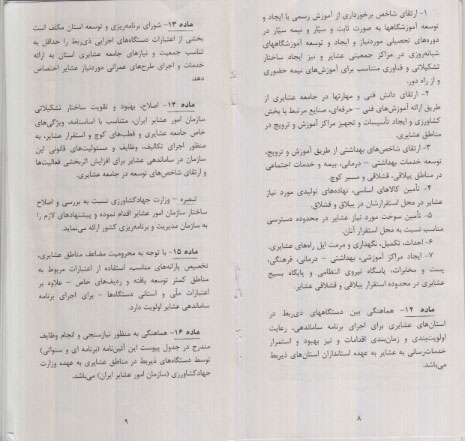 ۱- ارتقای شاخص برخورداری از آموزش رسمی با ایجاد و
توسعه آموزشگاهها به صورت ثابت و سیّار و نیمه سیّار در
دوره‌های تحصیلی موردنیاز و ایجاد و توسعه آموزشگاههای
شبانه‌روزی در مراکز جمعیتی عشایر و نیز ایجاد ساختار
تشکیلاتی و فناوری متناسب برای آموزش‌های نیمه حضوری
و از راه دور.
۲- ارتقای دانش فنی و مهارتها در جامعه عشایری از
طریق ارائه آموزش‌های فنی – حرفه‌ای، صنایع مرتبط با بخش
کشاورزی و ایجاد تأسیسات و تجهیز مراکز آموزش و ترویج در
مناطق عشایری.
۳- ارتقای شاخص‌های بهداشتی از طریق آموزش و ترویج،
توسعه خدمات بهداشتی – درمانی، بیمه و خدمات اجتماعی
در مناطق ییلاقی، قشلاقی و مسیر کوچ.
۴- تأمین کالاهای اساسی، نهاده‌های تولیدی مورد نیاز
عشایر در محل استقرارشان در ییلاق و قشلاق.
۵- تأمین سوخت مورد نیاز عشایر در محدوده دسترسی
مناسب نسبت به محل استقرار آنان.
۶- احداث، تکمیل، نگهداری و مرمت ایل راه‌های عشایری.
۷- ایجاد مراکز آموزشی، بهداشتی – درمانی، فرهنگی،
پست و مخابرات، پاسگاه نیروی انتظامی و پایگاه بسیج
عشایری در محدوده استقرار ییلاقی و قشلاقی عشایر.
ماده ۱۲- هماهنگی بین دستگاههای ذی‌ربط در
استان‌های عشایری برای اجرای برنامه ساماندهی، رعایت
اولویت‌بندی و زمان‌بندی اقدامات و نیز بهبود و استمرار
خدمات‌رسانی به عشایر به عهده استانداران استان‌های ذیربط
می‌باشد.
۸
ماده ۱۳- شورای برنامه‌ریزی و توسعه استان مکلف است
بخشی از اعتبارات دستگاه‌های اجرایی ذی‌ربط را حداقل به
تناسب جمعیت و نیازهای جامعه عشایری استان به ارائه
خدمات و اجرای طرح‌های عمرانی موردنیاز عشایر اختصاص
دهد.
ماده ۱۴- اصلاح، بهبود و تقویت ساختار تشکیلاتی
سازمان امور عشایر ایران، متناسب با اساسنامه، ویژگی‌های
خاص جامعه عشایری و قطب‌های کوچ و استقرار عشایر، به
منظور اجرای تکالیف، وظایف و مسئولیت‌های قانونی این
سازمان در ساماندهی عشایر برای افزایش اثربخشی فعالیت‌ها
و ارتقای شاخص‌های توسعه در جامعه عشایری.
تبصره – وزارت جهادکشاورزی نسبت به بررسی و اصلاح
ساختار سازمان امور عشایر اقدام نموده و پیشنهادهای لازم را
به سازمان مدیریت و برنامه‌ریزی کشور ارائه می‌نماید.
ماده ۱۵- با توجه به محرومیت مضاعف مناطق عشایری،
تخصیص یارانه‌های مناسب، استفاده از اعتبارات مربوط به
مناطق کمتر توسعه یافته و ردیف‌های خاص – علاوه بر
اعتبارات ملّی و استانی دستگاه‌ها – برای اجرای برنامه
ساماندهی عشایر اولویت دارد.
ماده ۱۶- هماهنگی به منظور نیازسنجی و انجام وظایف
مندرج در جدول پیوست این آئین‌نامه (برنامه ای و سنواتی)
توسط دستگاه‌های ذیربط در مناطق عشایری به عهده وزارت
جهادکشاورزی (سازمان امور عشایر ایران) می‌باشد.
۹